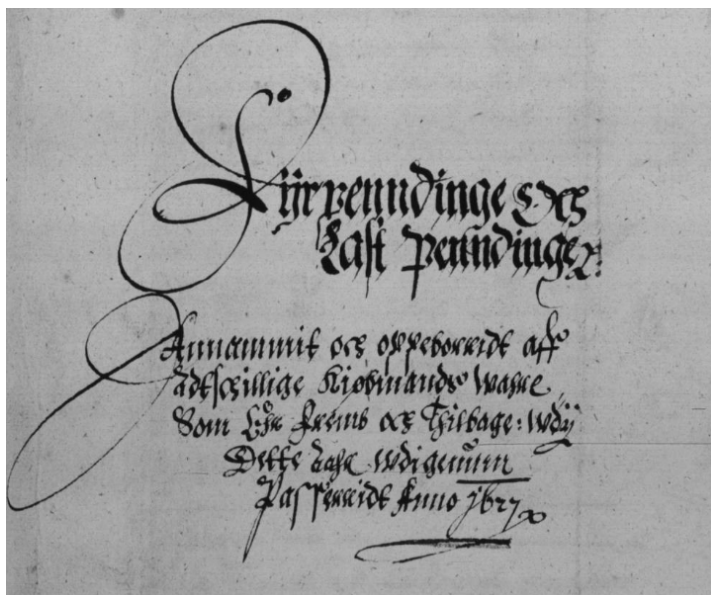 Fyrpenndinge Och
Last Penndinge
Annammit och oppeborridt aff
adtschillige Kiøbmands Wahre
Som Ehr frems och Thilbage: Wdj
Dette Aar Wdigenum
Passerridt Anno 1627